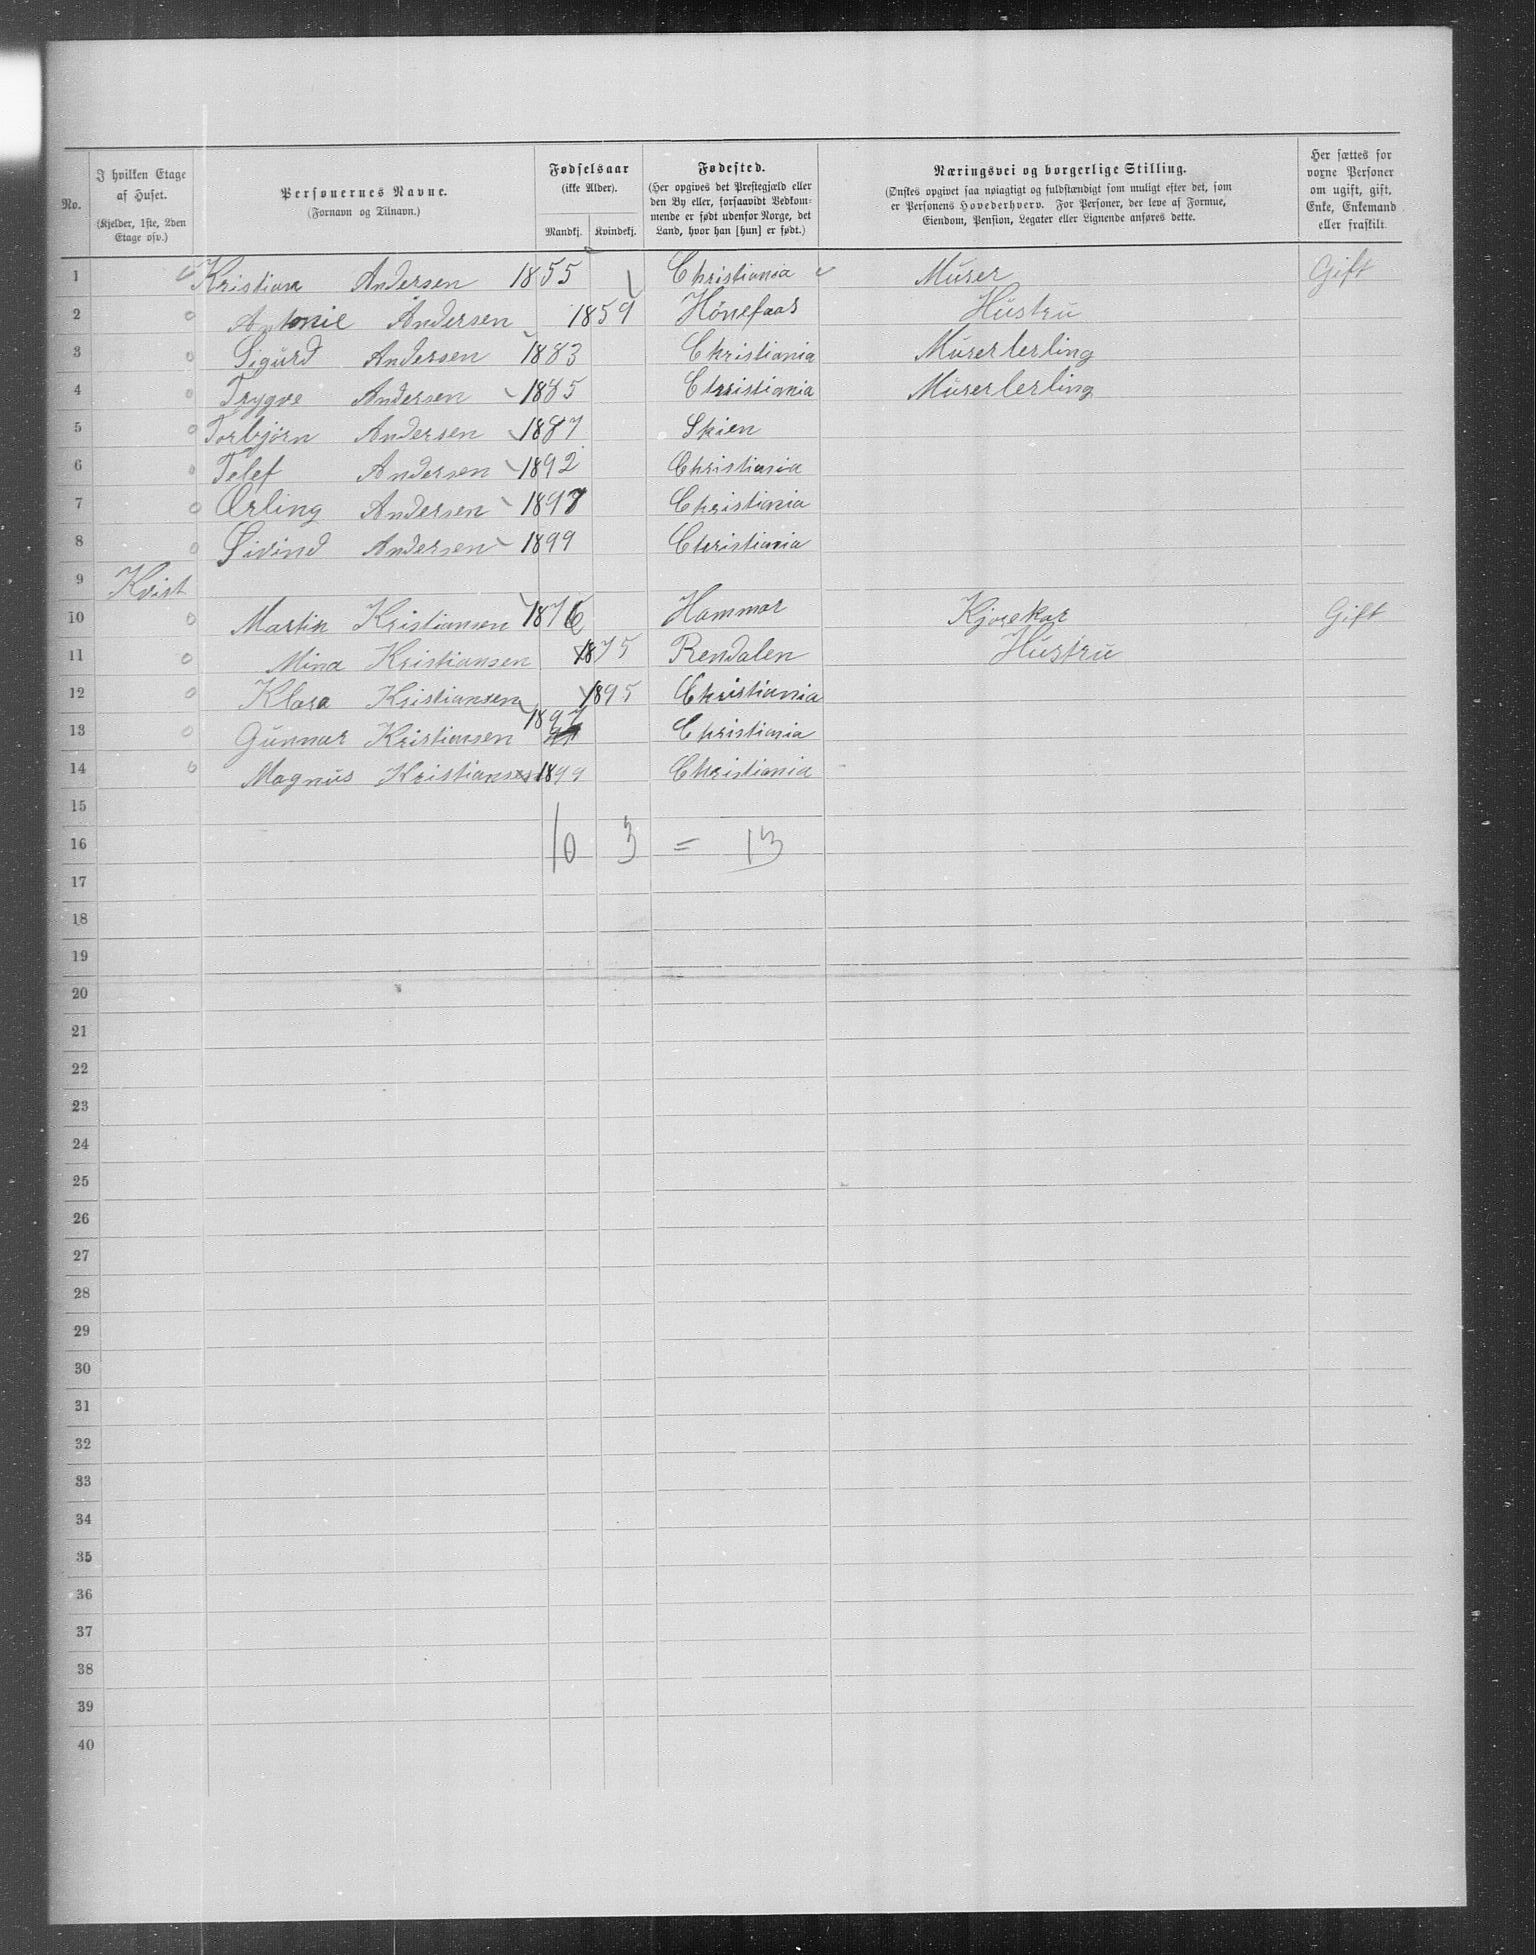 No.
I hvilken Etage af Huset.
(Kjelder, 1ste, 2den Etage osv.)
Personernes Navne.
(Fornavn og Tilnavn.)
Fødselsaar
(ikke Alder).
Mandkj. Kvindekj.
Fødested.
(Her opgives det Prestegjæld eller den By eller, forsaavidt Vedkommende er født udenfor Norge, det Land, hvor han [hun] er født.)
Næringsvei og borgerlige Stilling.
(Ønskes opgivet saa nøiagtigt og fuldstændigt som muligt efter det, som er Personens Hovederhverv. For Personer, der leve af Formue, Eiendom, Pension, Legater eller Lignende anføres dette.)
Her sættes for voxne Personer om ugift, gift, Enke, Enkemand eller fraskilt.
1 Kristian Andersen 1855 Christiania Murer Gift
2 Antonie Andersen 1859 Hönefoas Hustru
3 Sigurd Andersen 1883 Christiania Murerlerling
4 Trygve Andersen 1885 Christiania Murerlerling
5 Torbjörn Andersen 1887 Skien
6 Telef Andersen 1892 Christiania
7 Erling Andersen 1897 Christiania
8 Eivind Andersen 1899 Christiania
9 Kvist
10 Martin Kristiansen 1876 Hammar Kjørekar Gift
11 Mina Kristiansen 1875 Rendalen Hustru
12 Klara Kristiansen 1895 Christiania
13 Gunnar Kristiansen 1897 Christiania
14 Magnus Kristiansen 1899 Christiania
15
16 10 3 = 13
17
18
19
20
21
22
23
24
25
26
27
28
29
30
31
32
33
34
35
36
37
38
39
40